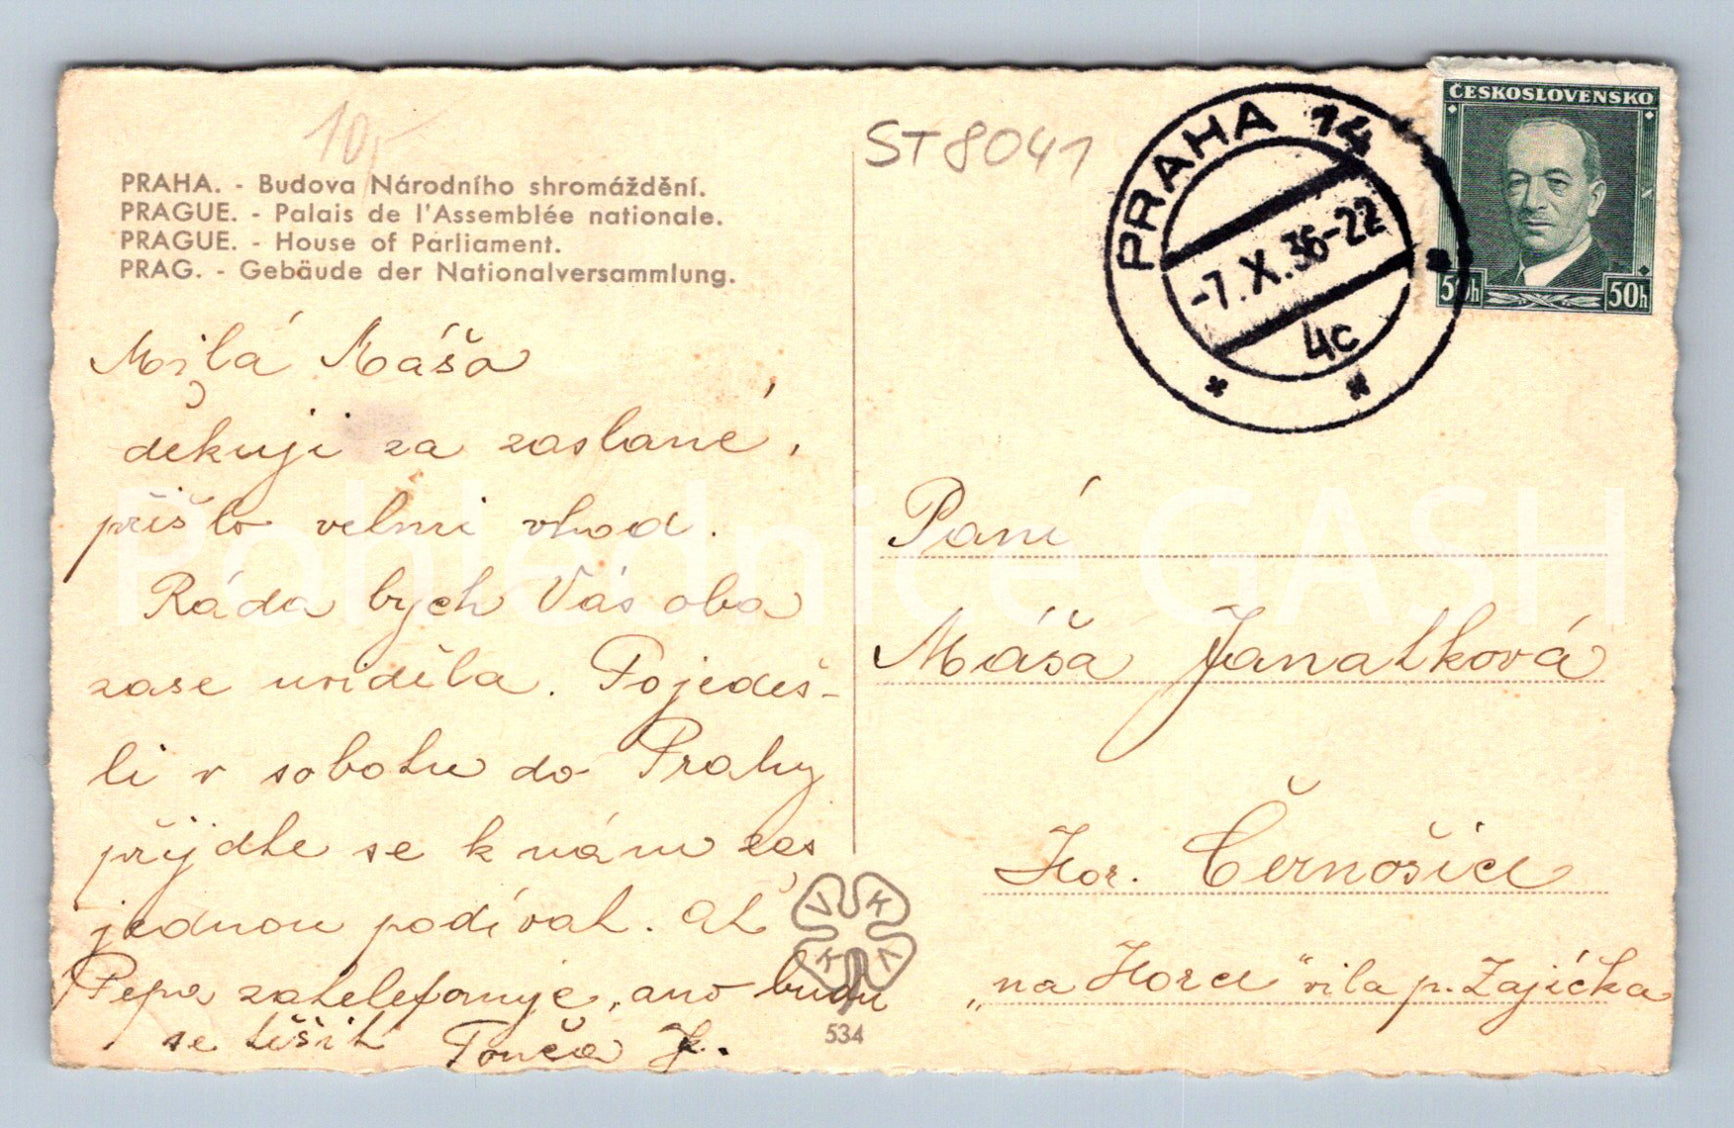 10,-
ST8041
PRAHA 14
-7.X.36-22
4c
ČESKOSLOVENSKO
50h 50h
PRAHA. - Budova Národního shromáždění.
PRAGUE. - Palais de l'Assemblée nationale.
PRAGUE. - House of Parliament.
PRAG. - Gebäude der Nationalversammlung.
Milá Mášo
děkuji za zaslané,
přišlo velmi vhod.
Ráda bych Vás oba
zase uviděla. Pojedeš-
li v sobotu do Prahy
přijdte se k nám zas
jednou podívat. Ať
Pepa zatelefonuje, ano budu
se těšit Tonča J.
Paní
Máša Janatková
Hor. Černošice
„na Horce" vila p. Zajíčka
VK
KV
534
Pohlednice GASH